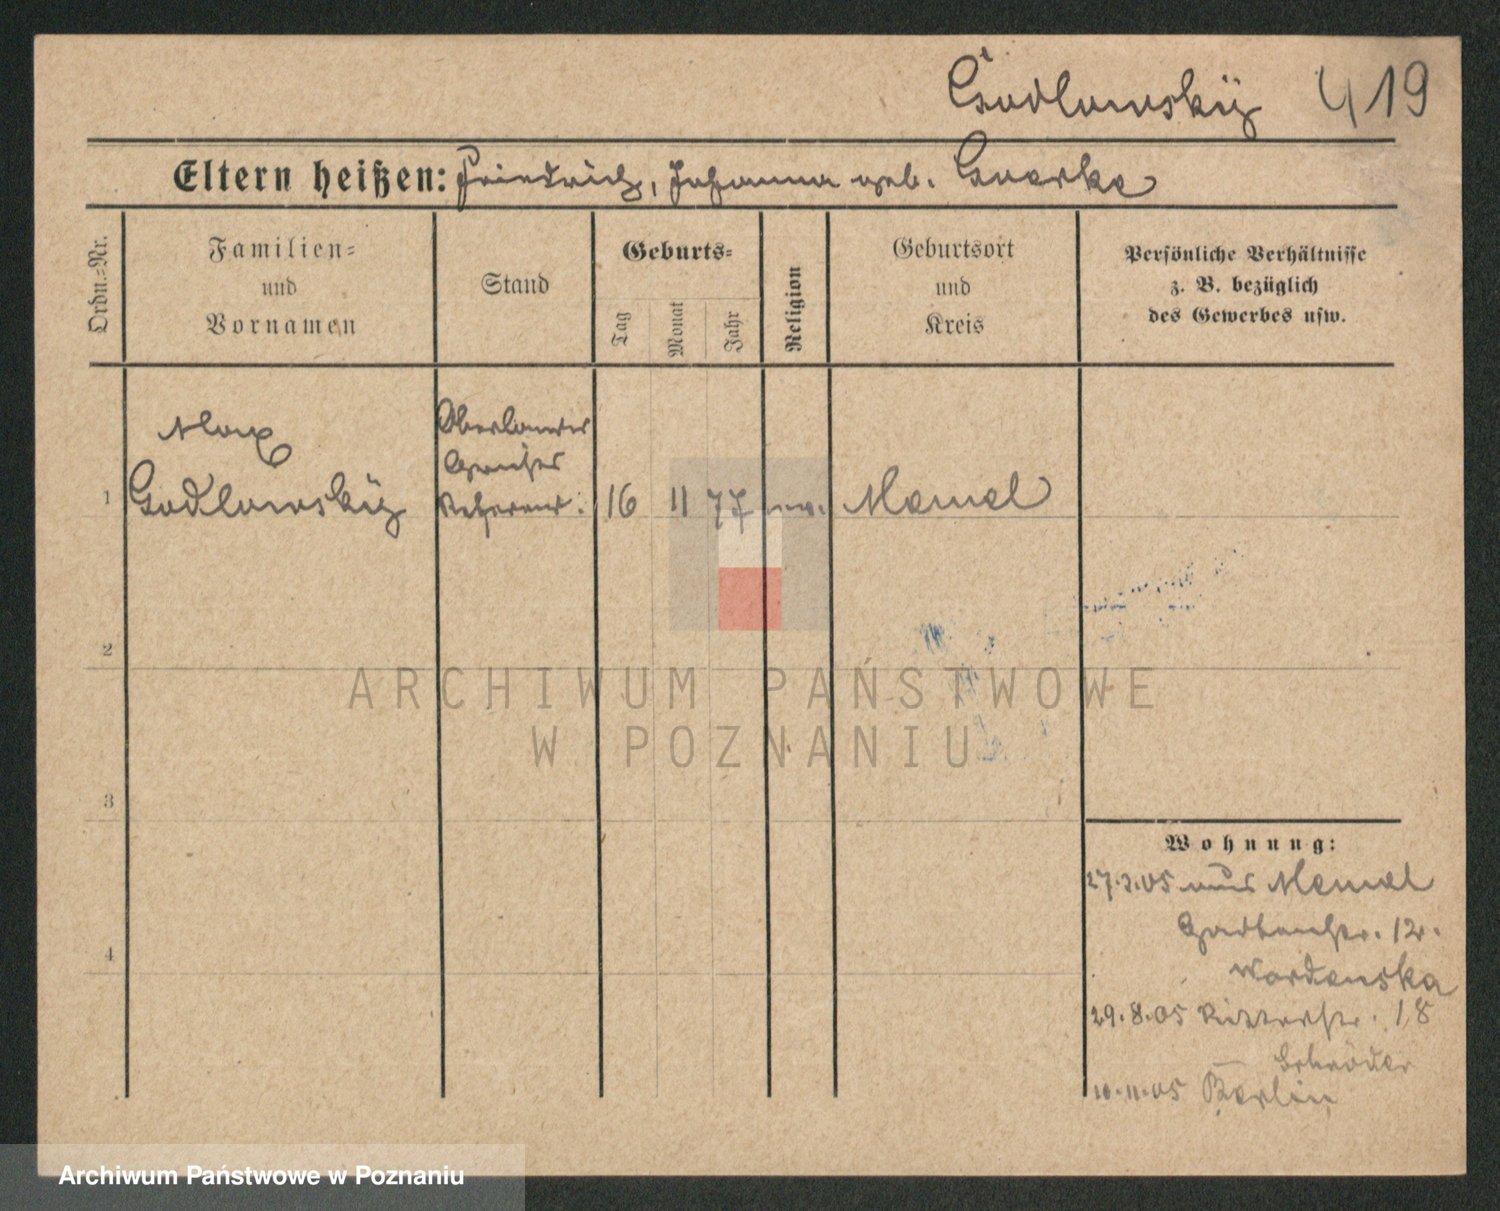 Godlowsky 419
Eltern heißen: Friedrich, Johanna geb.
Ordn.=Nr.
Familien=
und
Vornamen
Stand
Geburts=
Tag
Monat
Jahr
Religion
Geburtsort
und
Kreis
Persönliche Verhältnisse
z. B. bezüglich
des Gewerbes usw.
1
Max
Godlowsky
Oberlandes
Gerichts
Referend.
16
11
77
Memel
2
3
4
ARCHIWUM PAŃSTWOWE
W POZNANIU
Wohnung:
27.3.05 aus Memel
12.
Wordenska
29.8.05 Ritterstr. 18
Schröder
10.11.05 Berlin
Archiwum Państwowe w Poznaniu